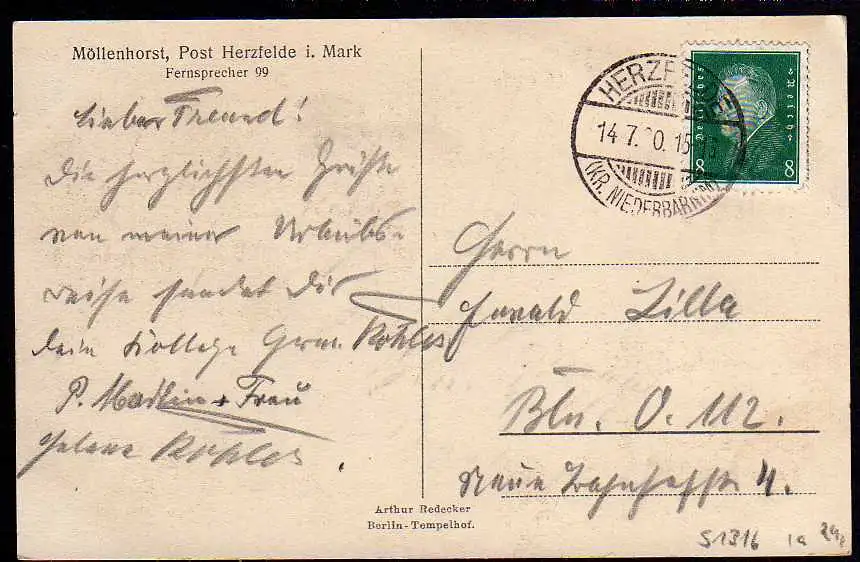 Möllenhorst, Post Herzfelde i. Mark
Fernsprecher 99
Lieber Freund!
Die herzlichsten Grüße
von meiner Urlaubs-
reise sendet Dir
Dein Kollege Herm. Kohles
P. Madlin + Frau
Helene Kohles.
HERZFELDE
14.7.30.15-16
(KR. NIEDERBARNIM)
Deutsches Reich
8 8
Herrn
Ewald Lilla
Bln. O. 112.
Neue Bahnhofstr 4.
Arthur Redecker
Berlin-Tempelhof.
S1316 1a